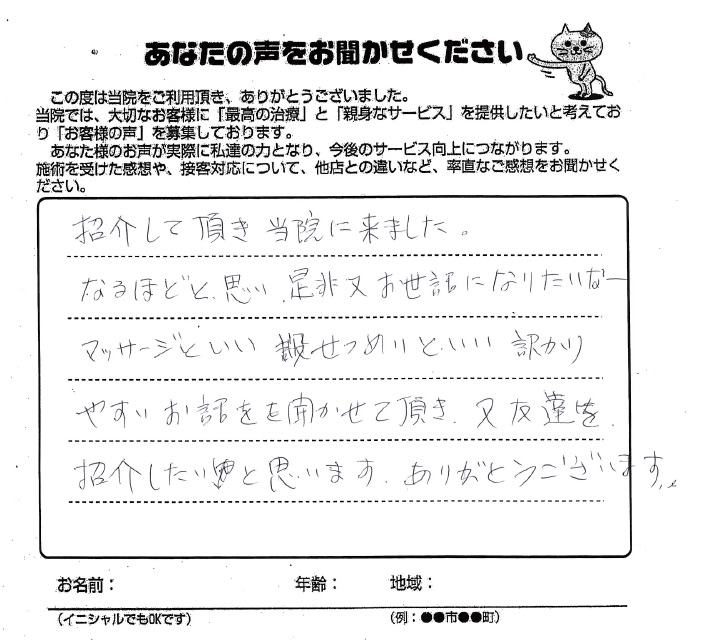 あなたの声をお聞かせください
この度は当院をご利用頂き、ありがとうございました。
当院では、大切なお客様に「最高の治療」と「親身なサービス」を提供したいと考えてお
り「お客様の声」を募集しております。
あなた様のお声が実際に私達の力となり、今後のサービス向上につながります。
施術を受けた感想や、接客対応について、他店との違いなど、率直なご感想をお聞かせく
ださい。
招介して頂き当院に来ました。
なるほどと思い是非又お世話になりたいなー
マッサージといい せつめいといい 訳かり
やすいお話をを聞かせて頂き、又友達を
招介したいと思います。ありがとうございます。
お名前： 年齢： 地域：
（イニシャルでもOKです） （例：●●市●●町）